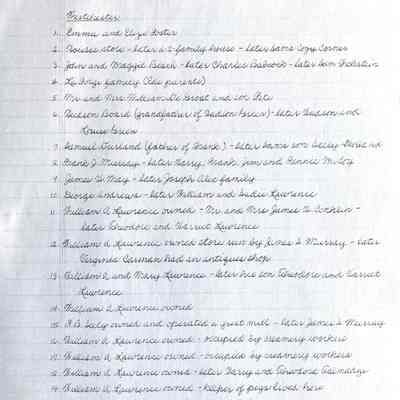 1. Emma and Eliza Foster
2. Houses store - later a 2-family house - later same Copy Corner
3. John and Maggie Beach - later Charles Babcock - later Sam
4. family (Abe parents)
5. Mr. and Mrs. William De Groat and son Pete
6. Hudson Board (Grandfather of Hudson) - later Hudson and
Louise
7. Samuel Durland (father of Frank) - later same son Seeley Durland
8. Frank J. Murray - later Harry, Frank, Jim and Bennie McCoy
9. James H. May - later Joseph family
10. George Andrews - later William and Sadie Lawrence
11. William A. Lawrence owned - Mr. and Mrs. James Conklin -
later Theodore and Harriet Lawrence
12. William A. Lawrence owned store run by James S. Murray - later
Virginia Carman had an antiques shop
13. William A. and Mary Lawrence - later his son Theodore and Harriet
Lawrence
14. William A. Lawrence owned
15. Seely owned and operated a grist mill - later James S. Murray
16. William A. Lawrence owned - occupied by creamery workers
17. William A. Lawrence owned - occupied by creamery workers
18. William A. Lawrence owned - later Harry and Theodore
19. William A. Lawrence owned - keeper of pigs lived here